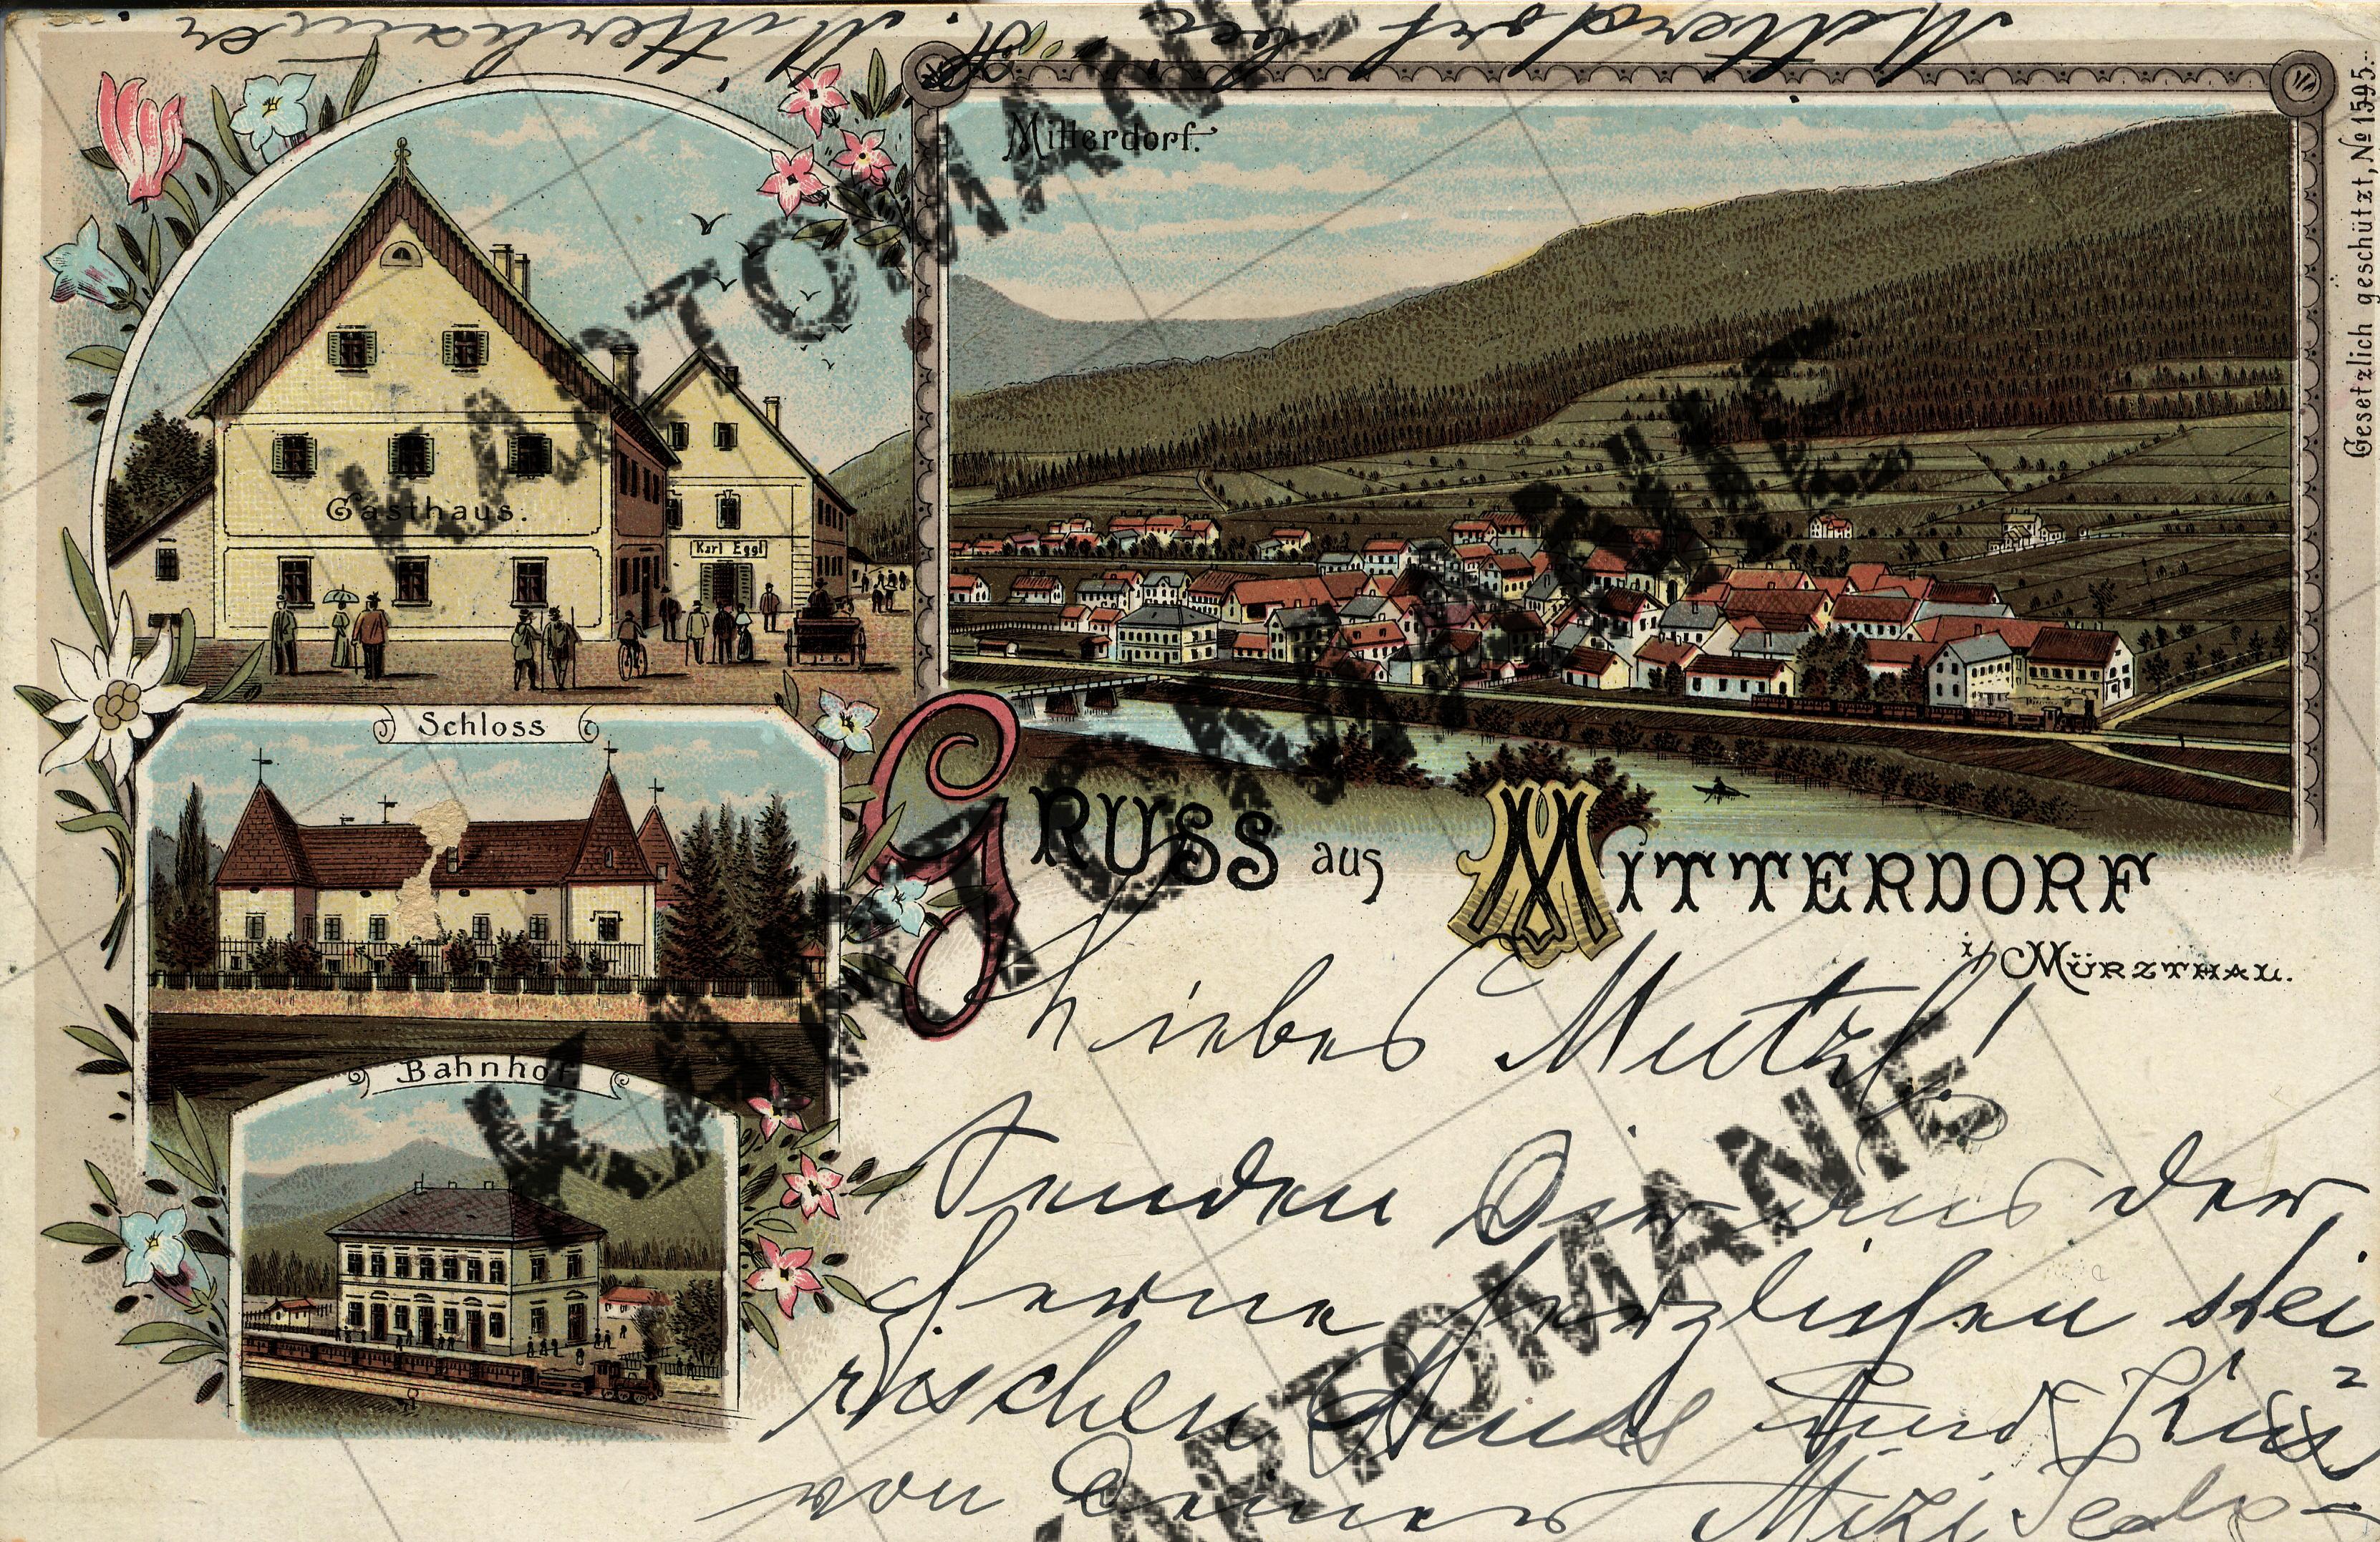 Mitterdorf.
Gesetzlich geschützt, No 1595.
Gasthaus.
Karl Eggl
Schloss
Bahnhof
GRUSS aus MITTERDORF
i/ MÜRZTHAL.
Liebes Mutzl!
Senden Dir aus der
Ferne herzlichen stei
rischen Gruß und Kuss
von Deiner Mizi
Mitterdorf bei
KARTOMANIE
KARTOMANIE
KARTOMANIE